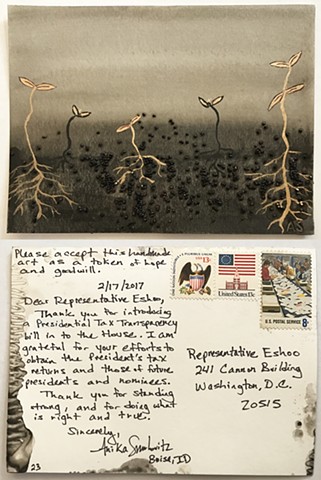 AS
Please accept this handmade
art as a token of hope
and goodwill.
2/17/2017
Dear Representative Eshoo,
Thank you for introducing
a Presidential Tax Transparency
bill in to the House. I am
grateful for your efforts to
obtain the President's tax
returns and those of future
presidents and nominees.
Thank you for standing
strong, and for doing what
is right and true.
Sincerely,
Anika
Boise, ID
23
USA 13c
United States 13c
U.S. POSTAL SERVICE 8c
Representative Eshoo
241 Cannon Building
Washington, D.C.
20515